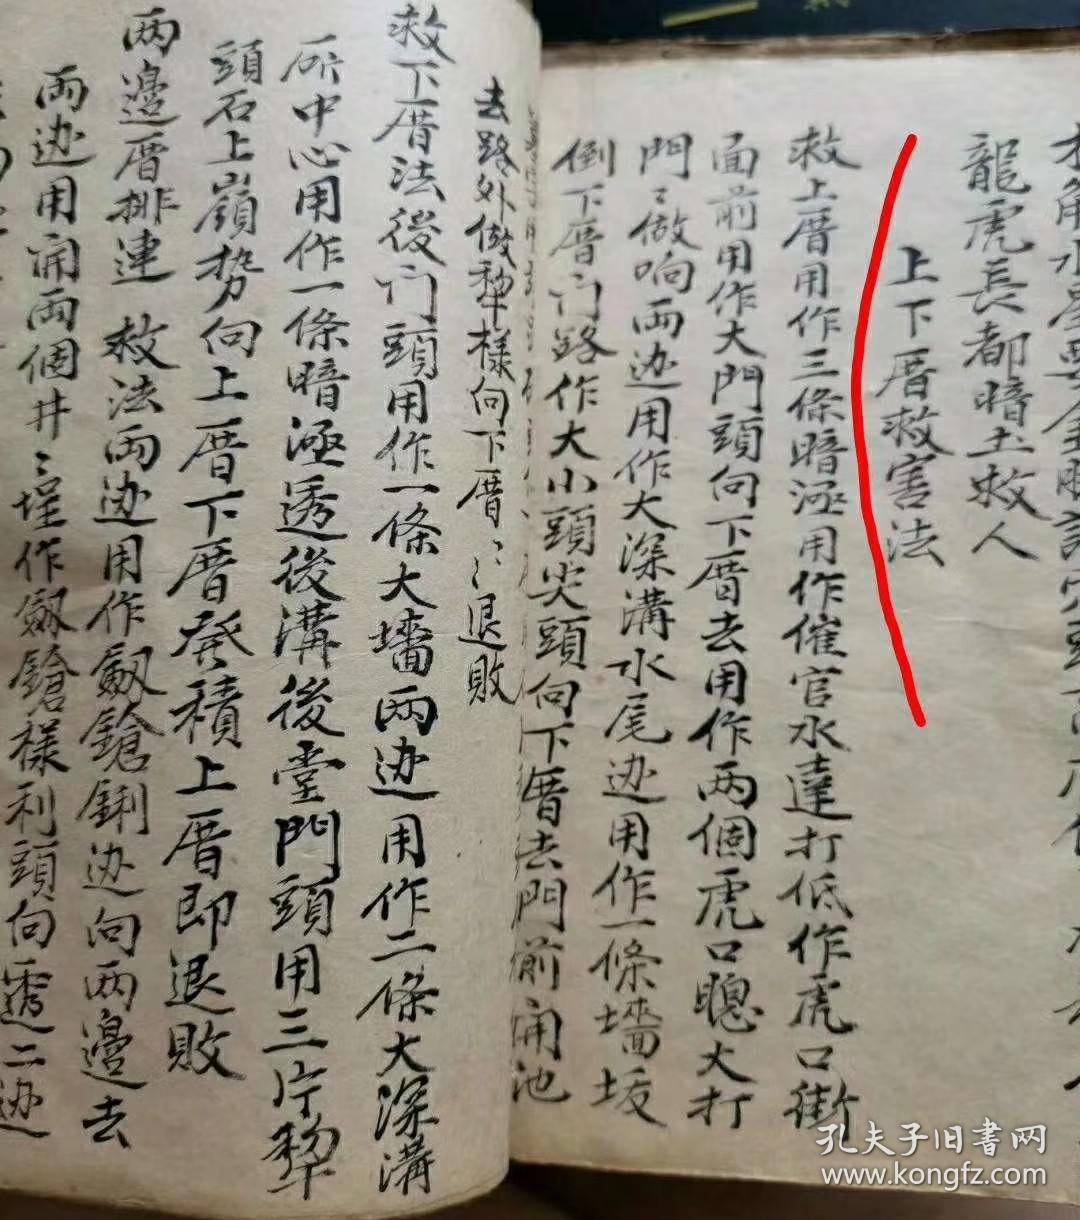 龍虎長都暗土救人
上下厝救害法
救上厝用作三條暗𣳾用作催官水達打低作虎口衝
面前用作大門頭向下厝去用作两個虎口聰大打
門〻做响兩边用作大深溝水尾边用作一條墻坂
倒下厝门路作大小頭尖頭向下厝去門前開池
去路外做犂樣向下厝〻退敗
救下厝法後门頭用作一條大墻两边用作二條大深溝
所中心用作一條暗透後溝後堂門頭用三片犂
頭石上嶺势向上厝下厝発積上厝即退敗
两邊厝排連 救法两边用作劔鎗鋓边向两邊去
兩边用開兩個井〻埕作劔鎗樣利頭向透二边
孔夫子旧書网
www.kongfz.com